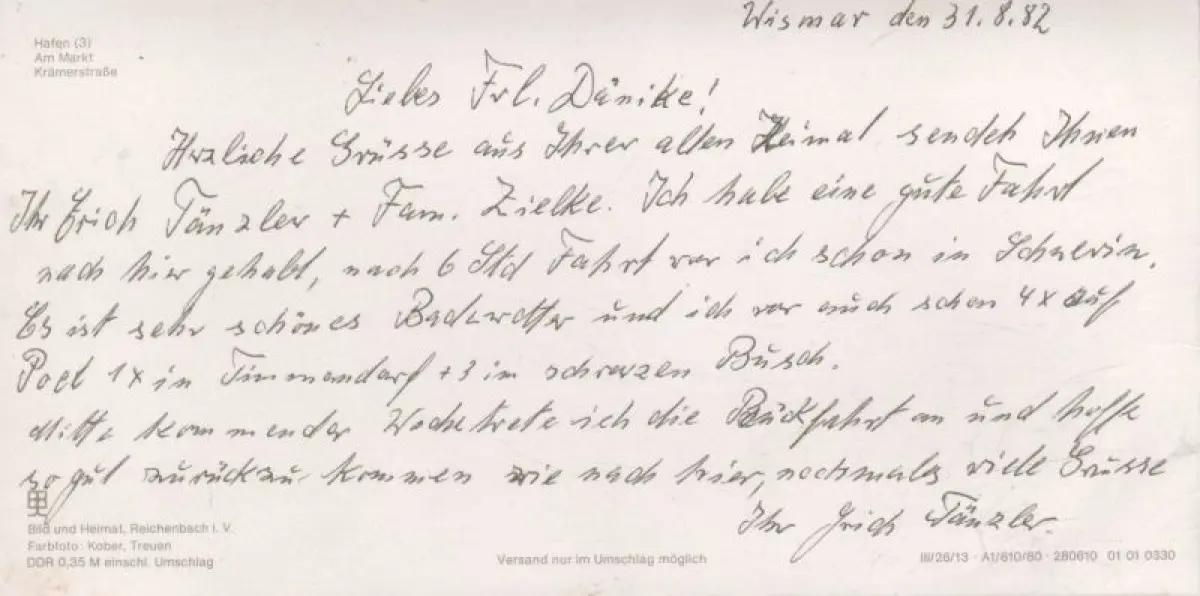 Wismar den 31.8.82
Hafen (3)
Am Markt
Krämerstraße
Liebes Frl. Dänike!
Herzliche Grüsse aus Ihrer alten Heimat sendet Ihnen
Ihr Erich Tänzler + Fam. Zielke. Ich habe eine gute Fahrt
nach hier gehabt, nach 6 Std Fahrt war ich schon in Schwerin.
Es ist sehr schönes Badewetter und ich war auch schon 4x auf
Poel 1x in Timmendorf + 3 im schwarzen Busch.
Mitte kommender Woche trete ich die Rückfahrt an und hoffe
so gut zurückzu kommen wie nach hier, nochmals viele Grüsse
Ihr Erich Tänzler.
Bild und Heimat, Reichenbach i. V.
Farbfoto: Kober, Treuen
DDR 0,35 M einschl. Umschlag
Versand nur im Umschlag möglich
III/26/13 · A1/610/80 · 280610 01 01 0330